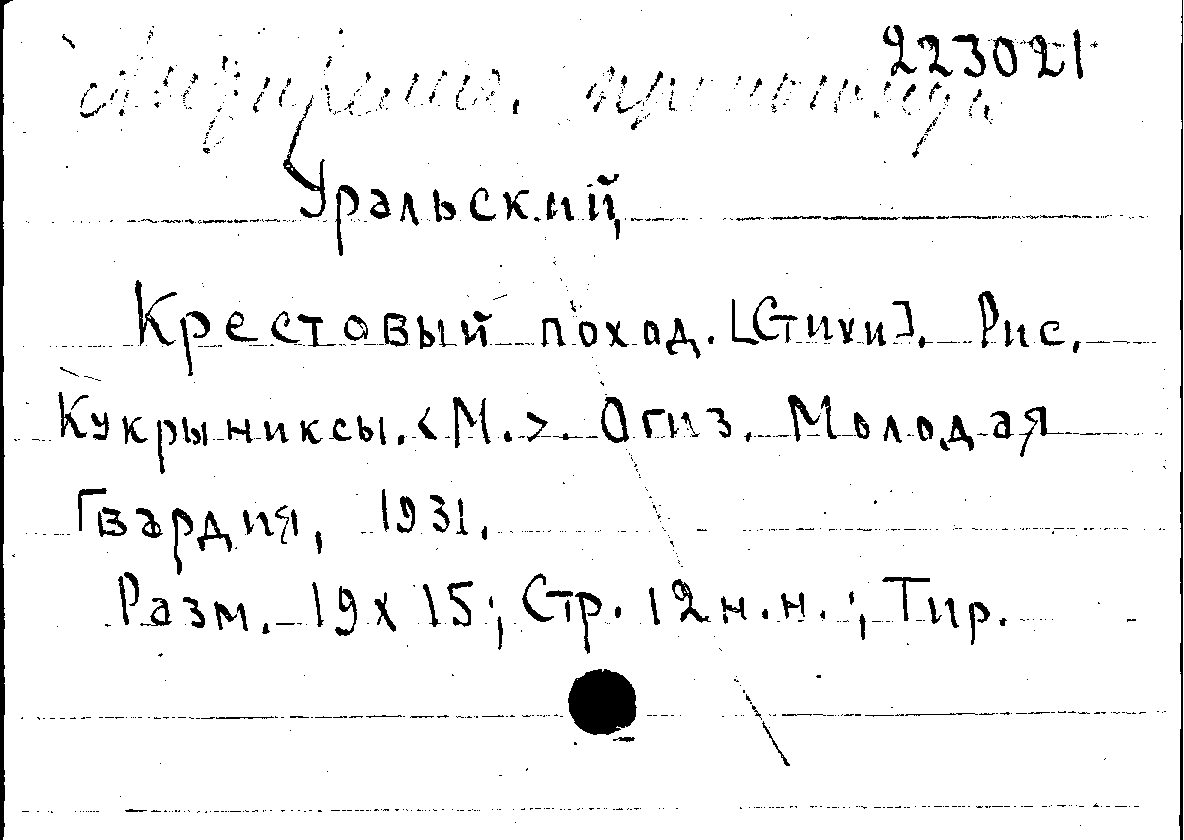 223021
Антирелиг. пропаганда
Уральский
Крестовый поход. [Стихи]. Рис.
Кукрыниксы. <М.>. Огиз. Молодая
Гвардия, 1931.
Разм. 19х15; Стр. 12 н.н.; Тир.